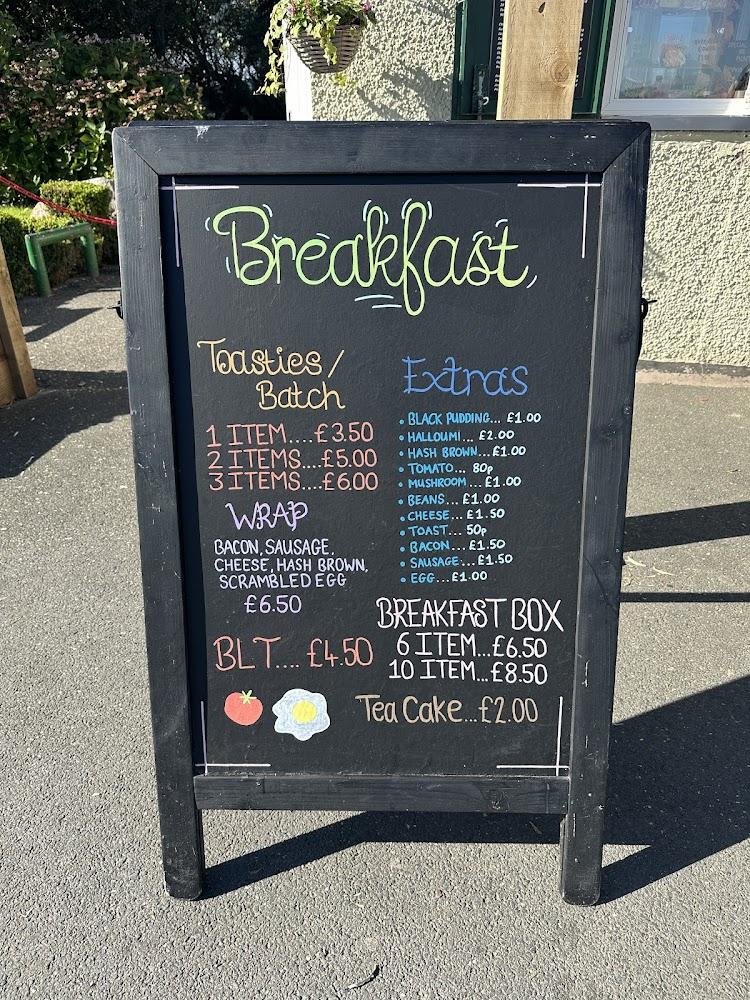 Breakfast
Toasties/
Batch
1 ITEM....£3.50
2 ITEMS....£5.00
3 ITEMS....£6.00
WRAP
BACON, SAUSAGE,
CHEESE, HASH BROWN,
SCRAMBLED EGG
£6.50
BLT.... £4.50
Extras
• BLACK PUDDING... £1.00
• HALLOUMI... £2.00
• HASH BROWN...£1.00
• TOMATO... 80p
• MUSHROOM...£1.00
• BEANS... £1.00
• CHEESE... £1.50
• TOAST... 50p
• BACON... £1.50
• SAUSAGE... £1.50
• EGG...£1.00
BREAKFAST BOX
6 ITEM...£6.50
10 ITEM...£8.50
Tea Cake...£2.00